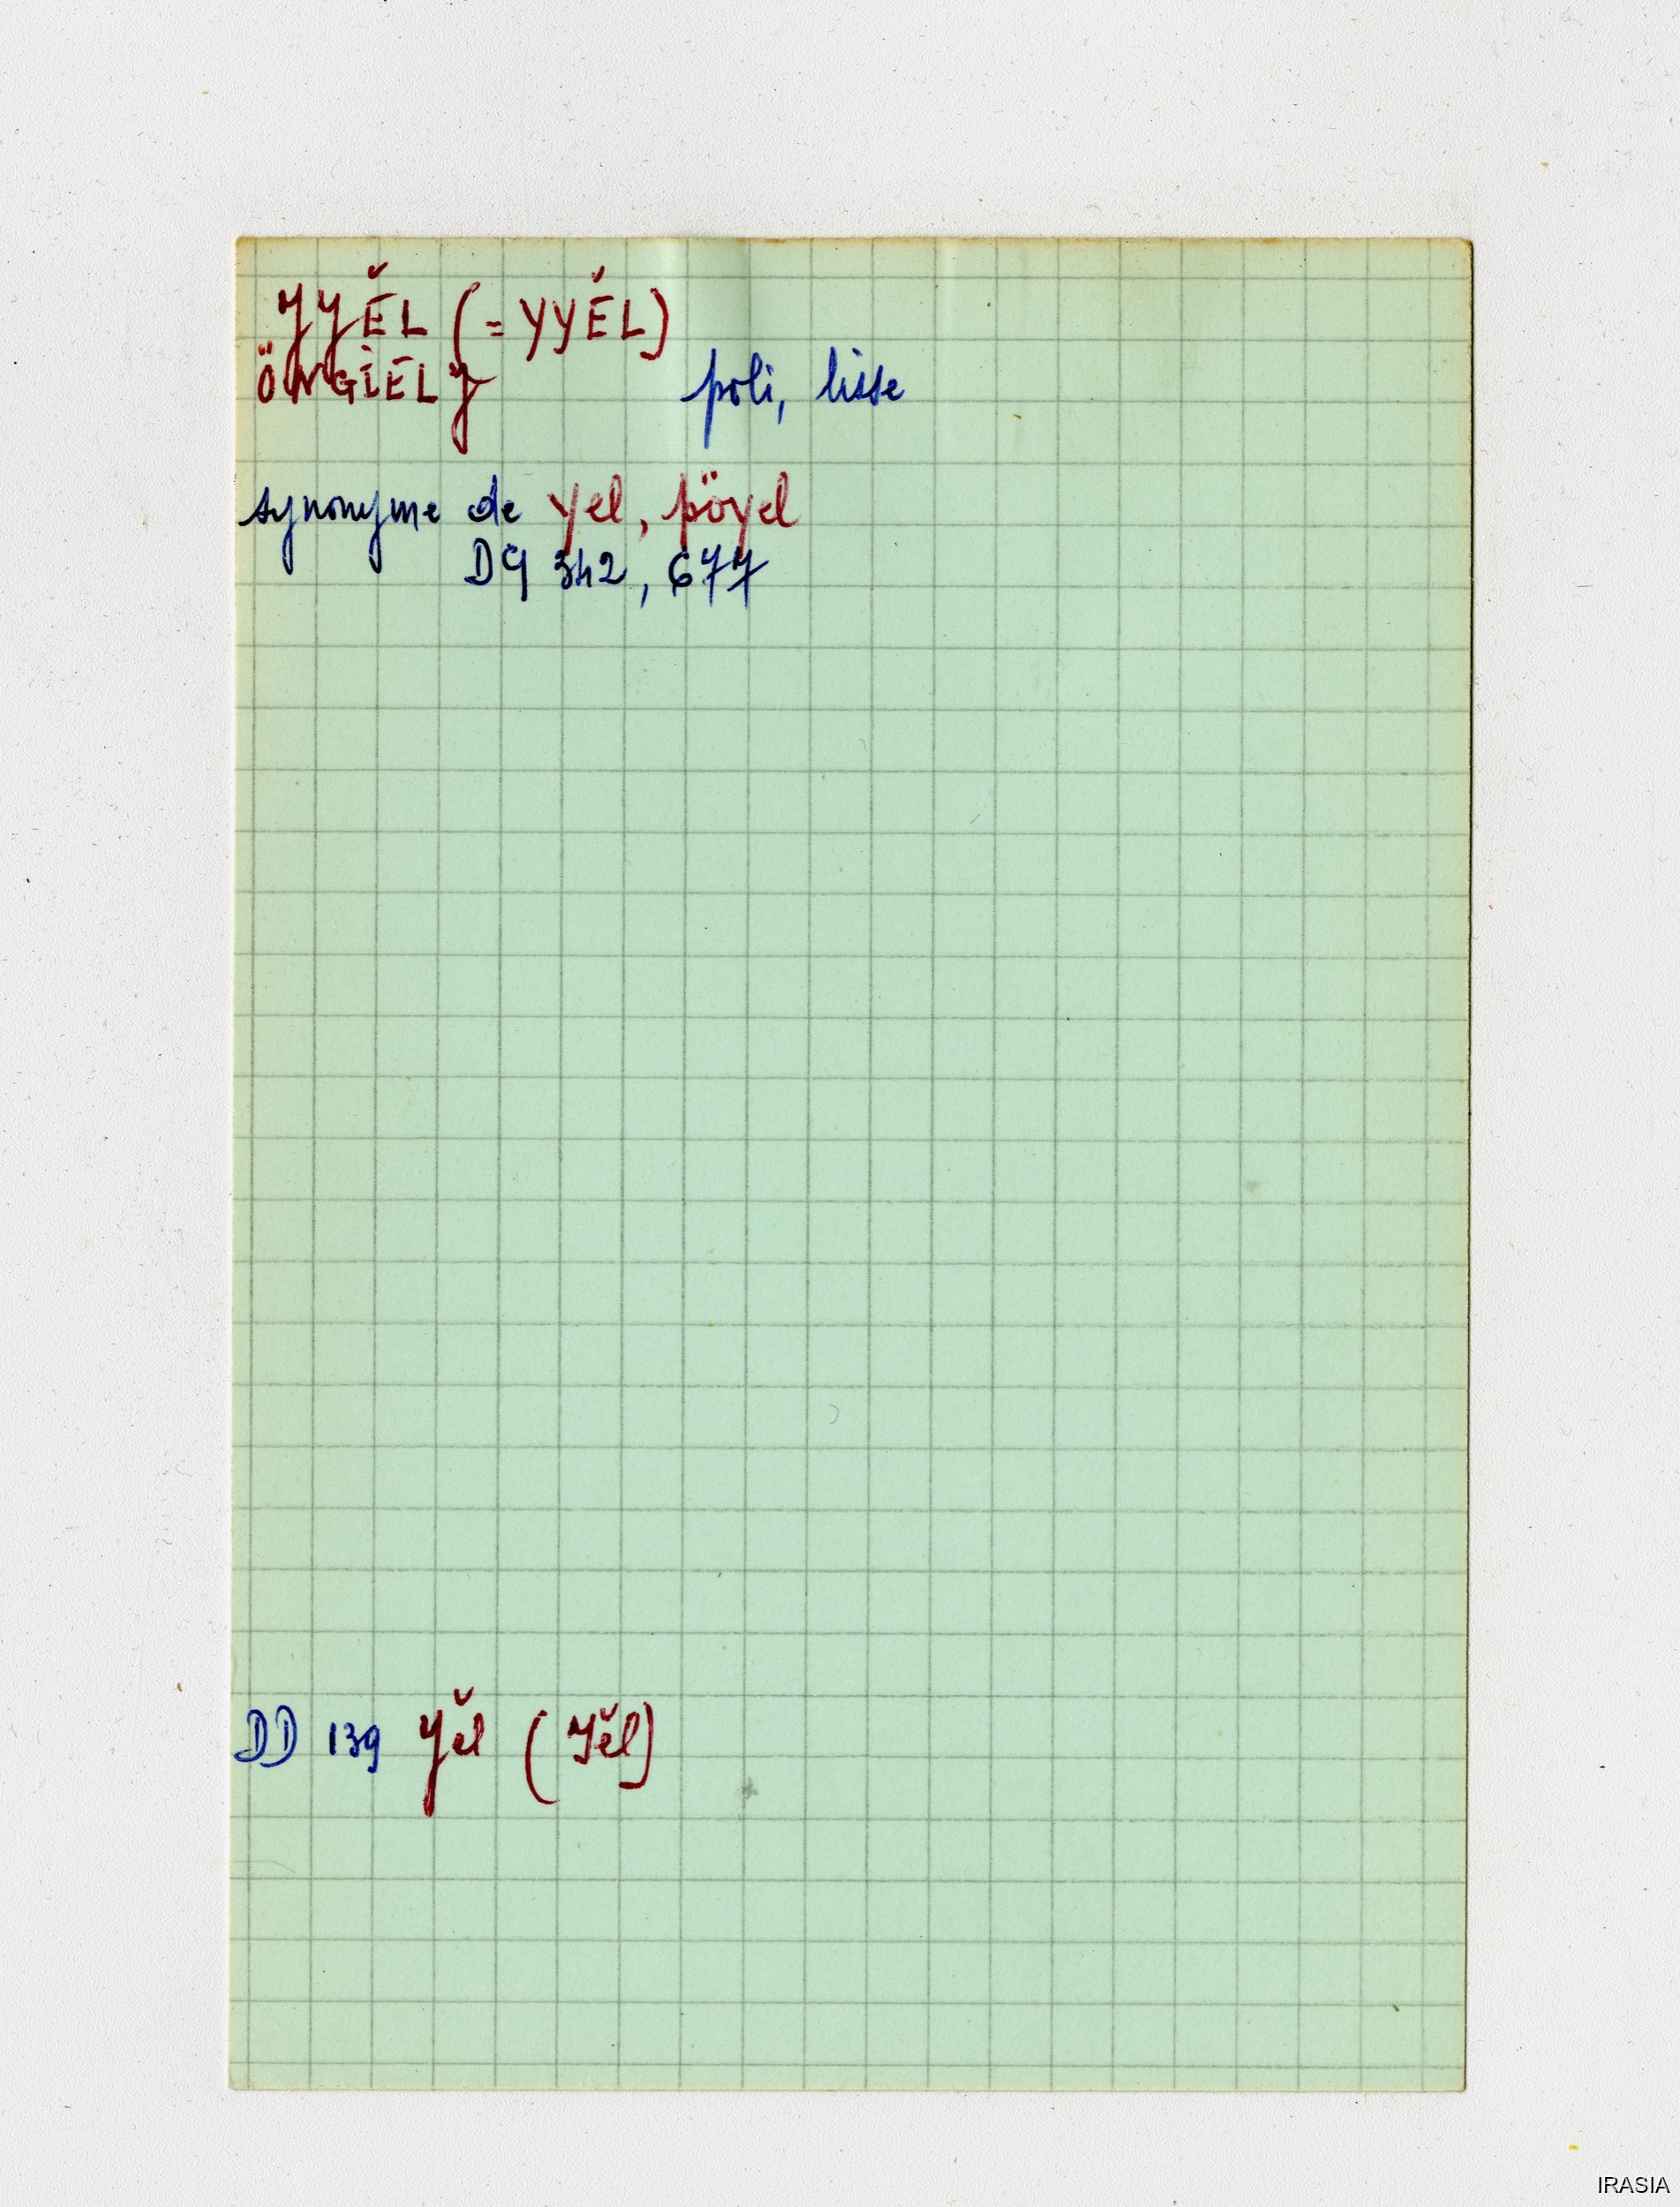 YYĔL (= YYĔL)
ÖNGIEL Y
poli, lisse
synonyme de yel, pöyel
DG 342, 677
DD 139 Yĕl (Yĕl)
IRASIA